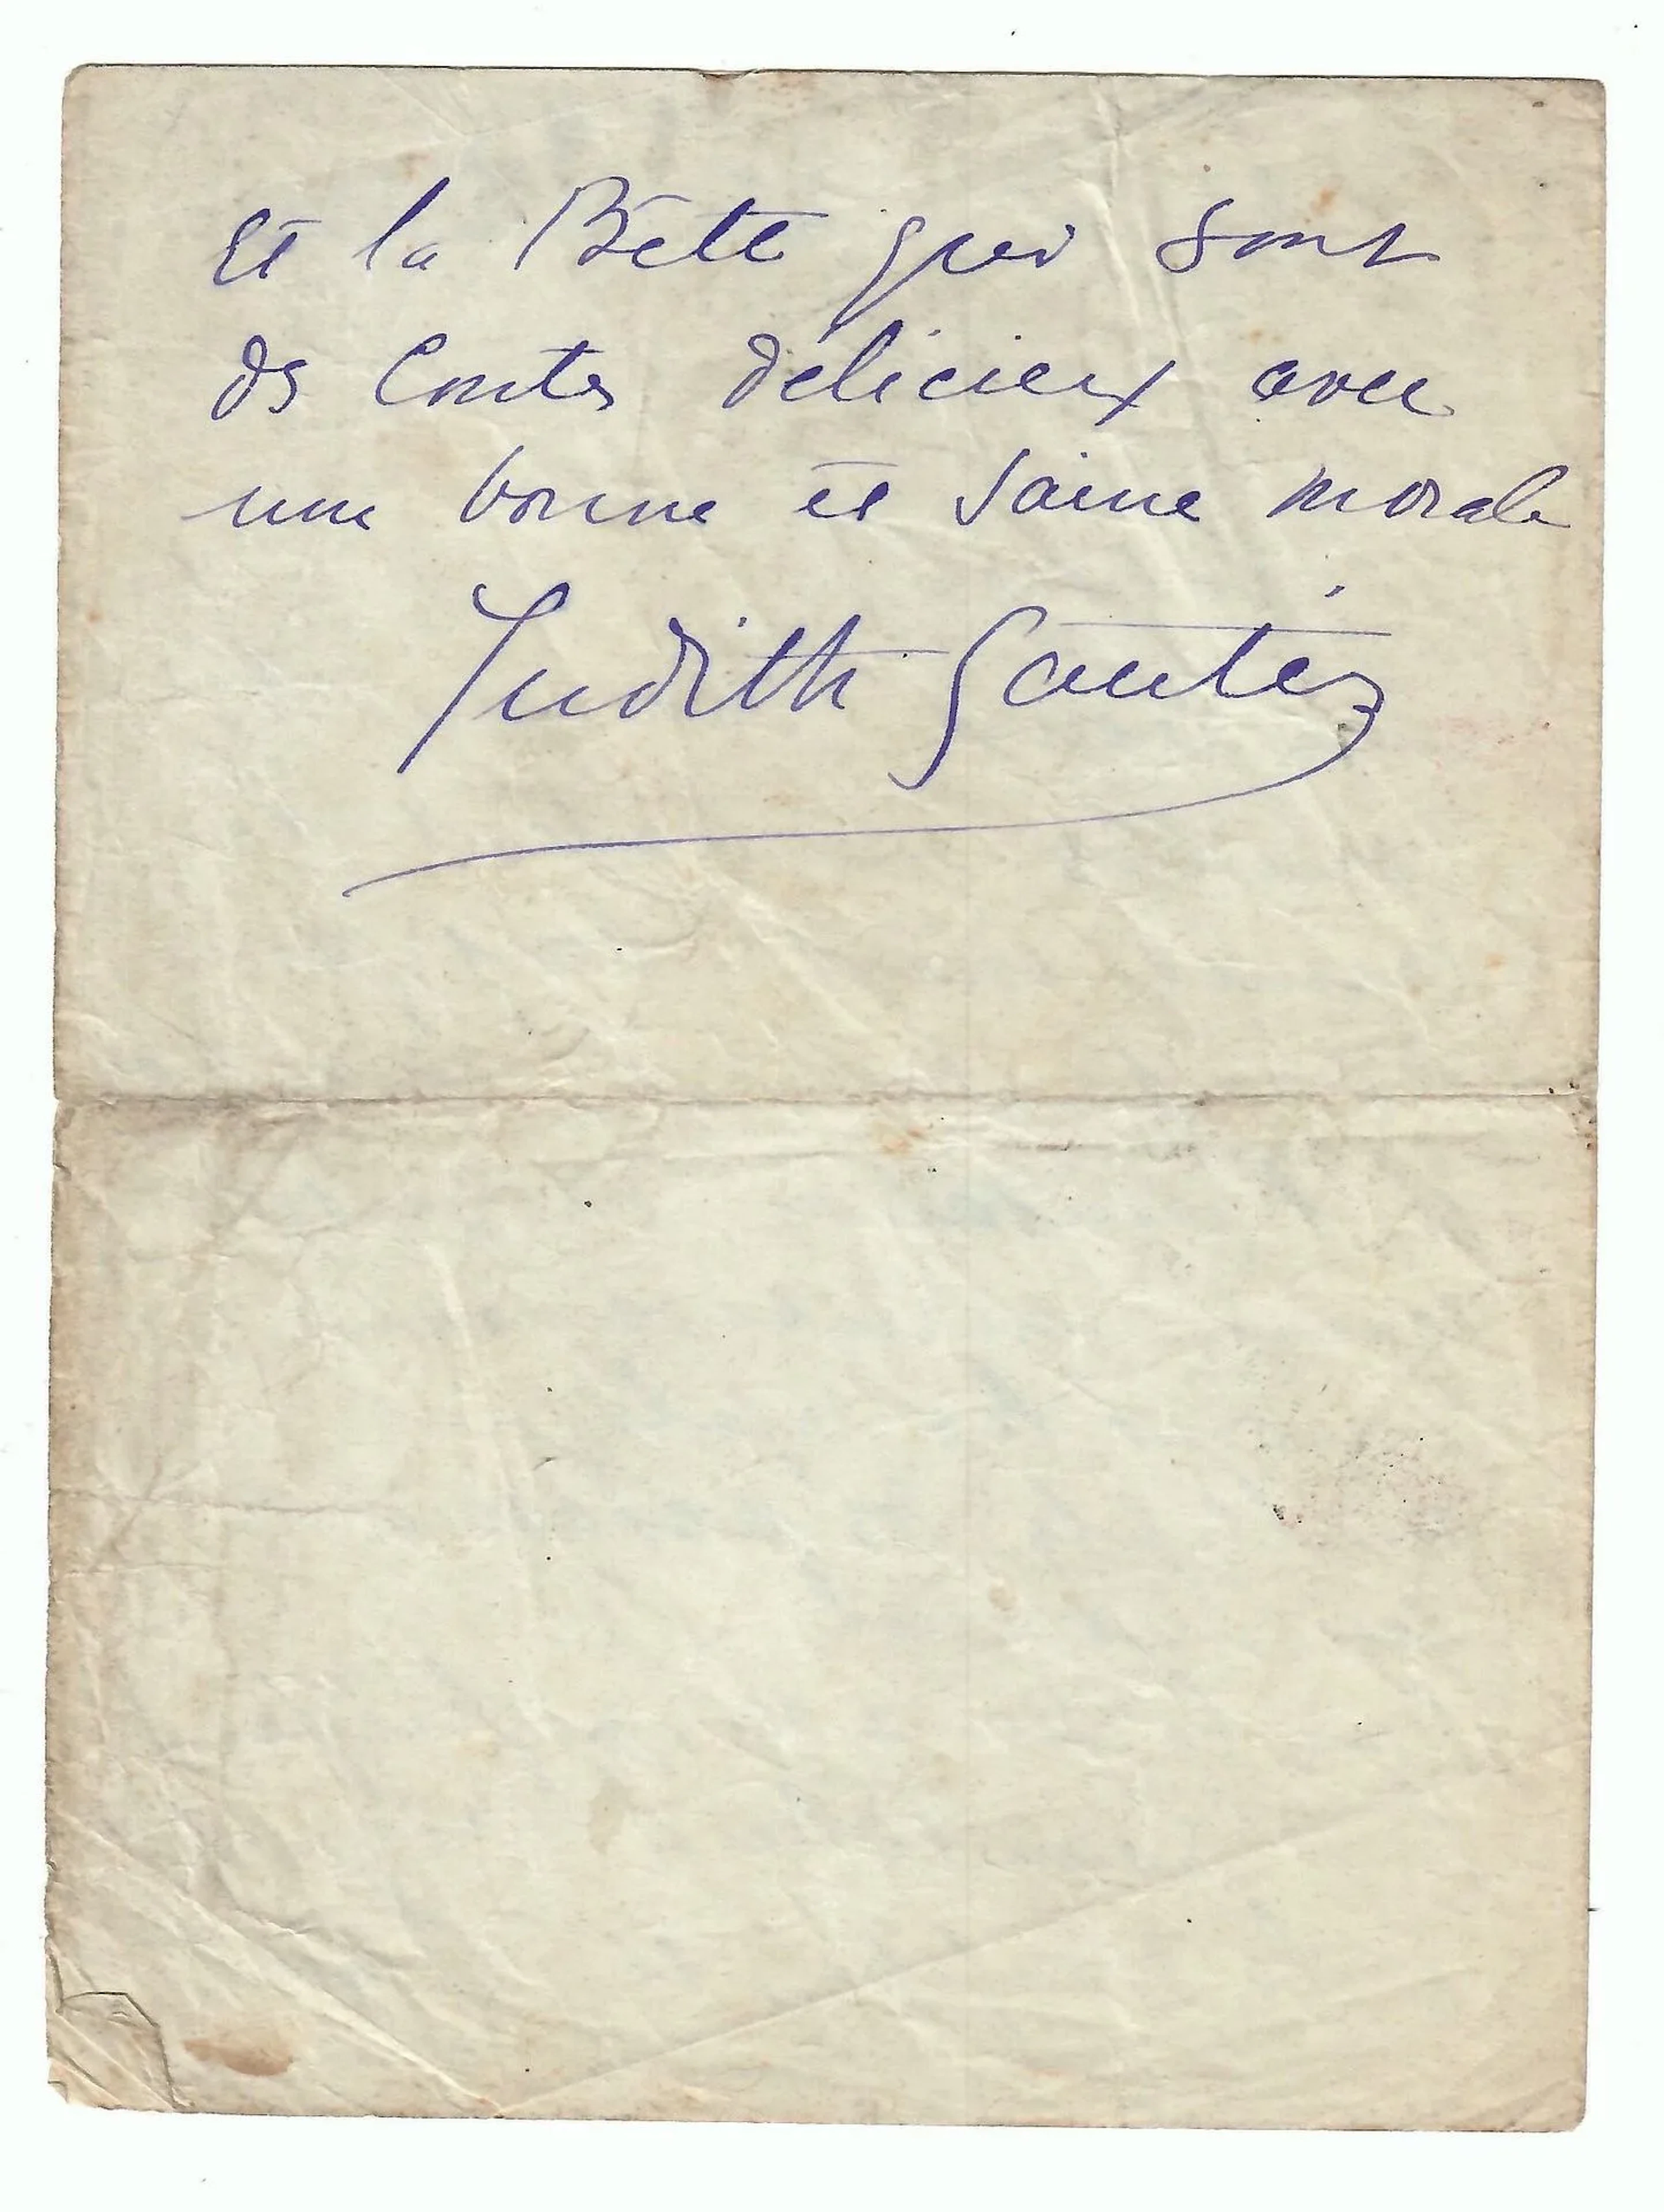 et la Bête qui sont
ds Contes délicieux avec
une bonne et saine morale
Judith Gautier